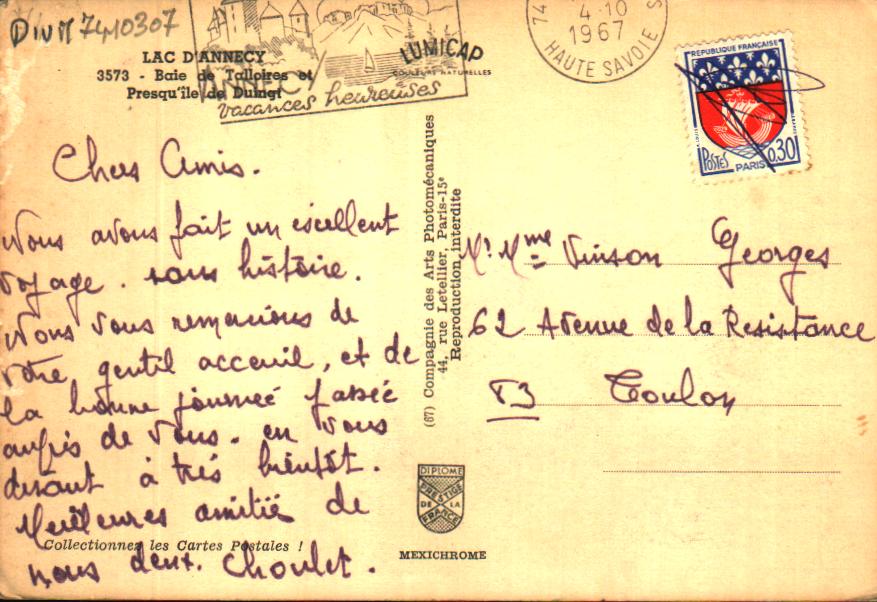 DIVM 7410307
LAC D'ANNECY
3573 - Baie de Talloires et
Presqu'île de Duingt
ANNECY
vacances heureuses
LUMICAP
COULEURS NATURELLES
74
4-10
1967
HAUTE SAVOIE
REPUBLIQUE FRANÇAISE
POSTES
0,30
PARIS
Chers Amis.
Nous avons fait un escellent
voyage. sans histoire.
Nous vous remercions de
votre gentil acceuil, et de
la bonne journeé passée
auprés de vous. en vous
disant à trés bientôt.
Meilleures amitié de
nous deux. Choulet.
Collectionnez les Cartes Postales !
(67) Compagnie des Arts Photomécaniques
44, rue Letellier, Paris-15e
Reproduction interdite
Mr Mme Vinson Georges
62 Avenue de la Resistance
83 Toulon
DIPLOME
PRESTIGE
DE LA
FRANCE
MEXICHROME